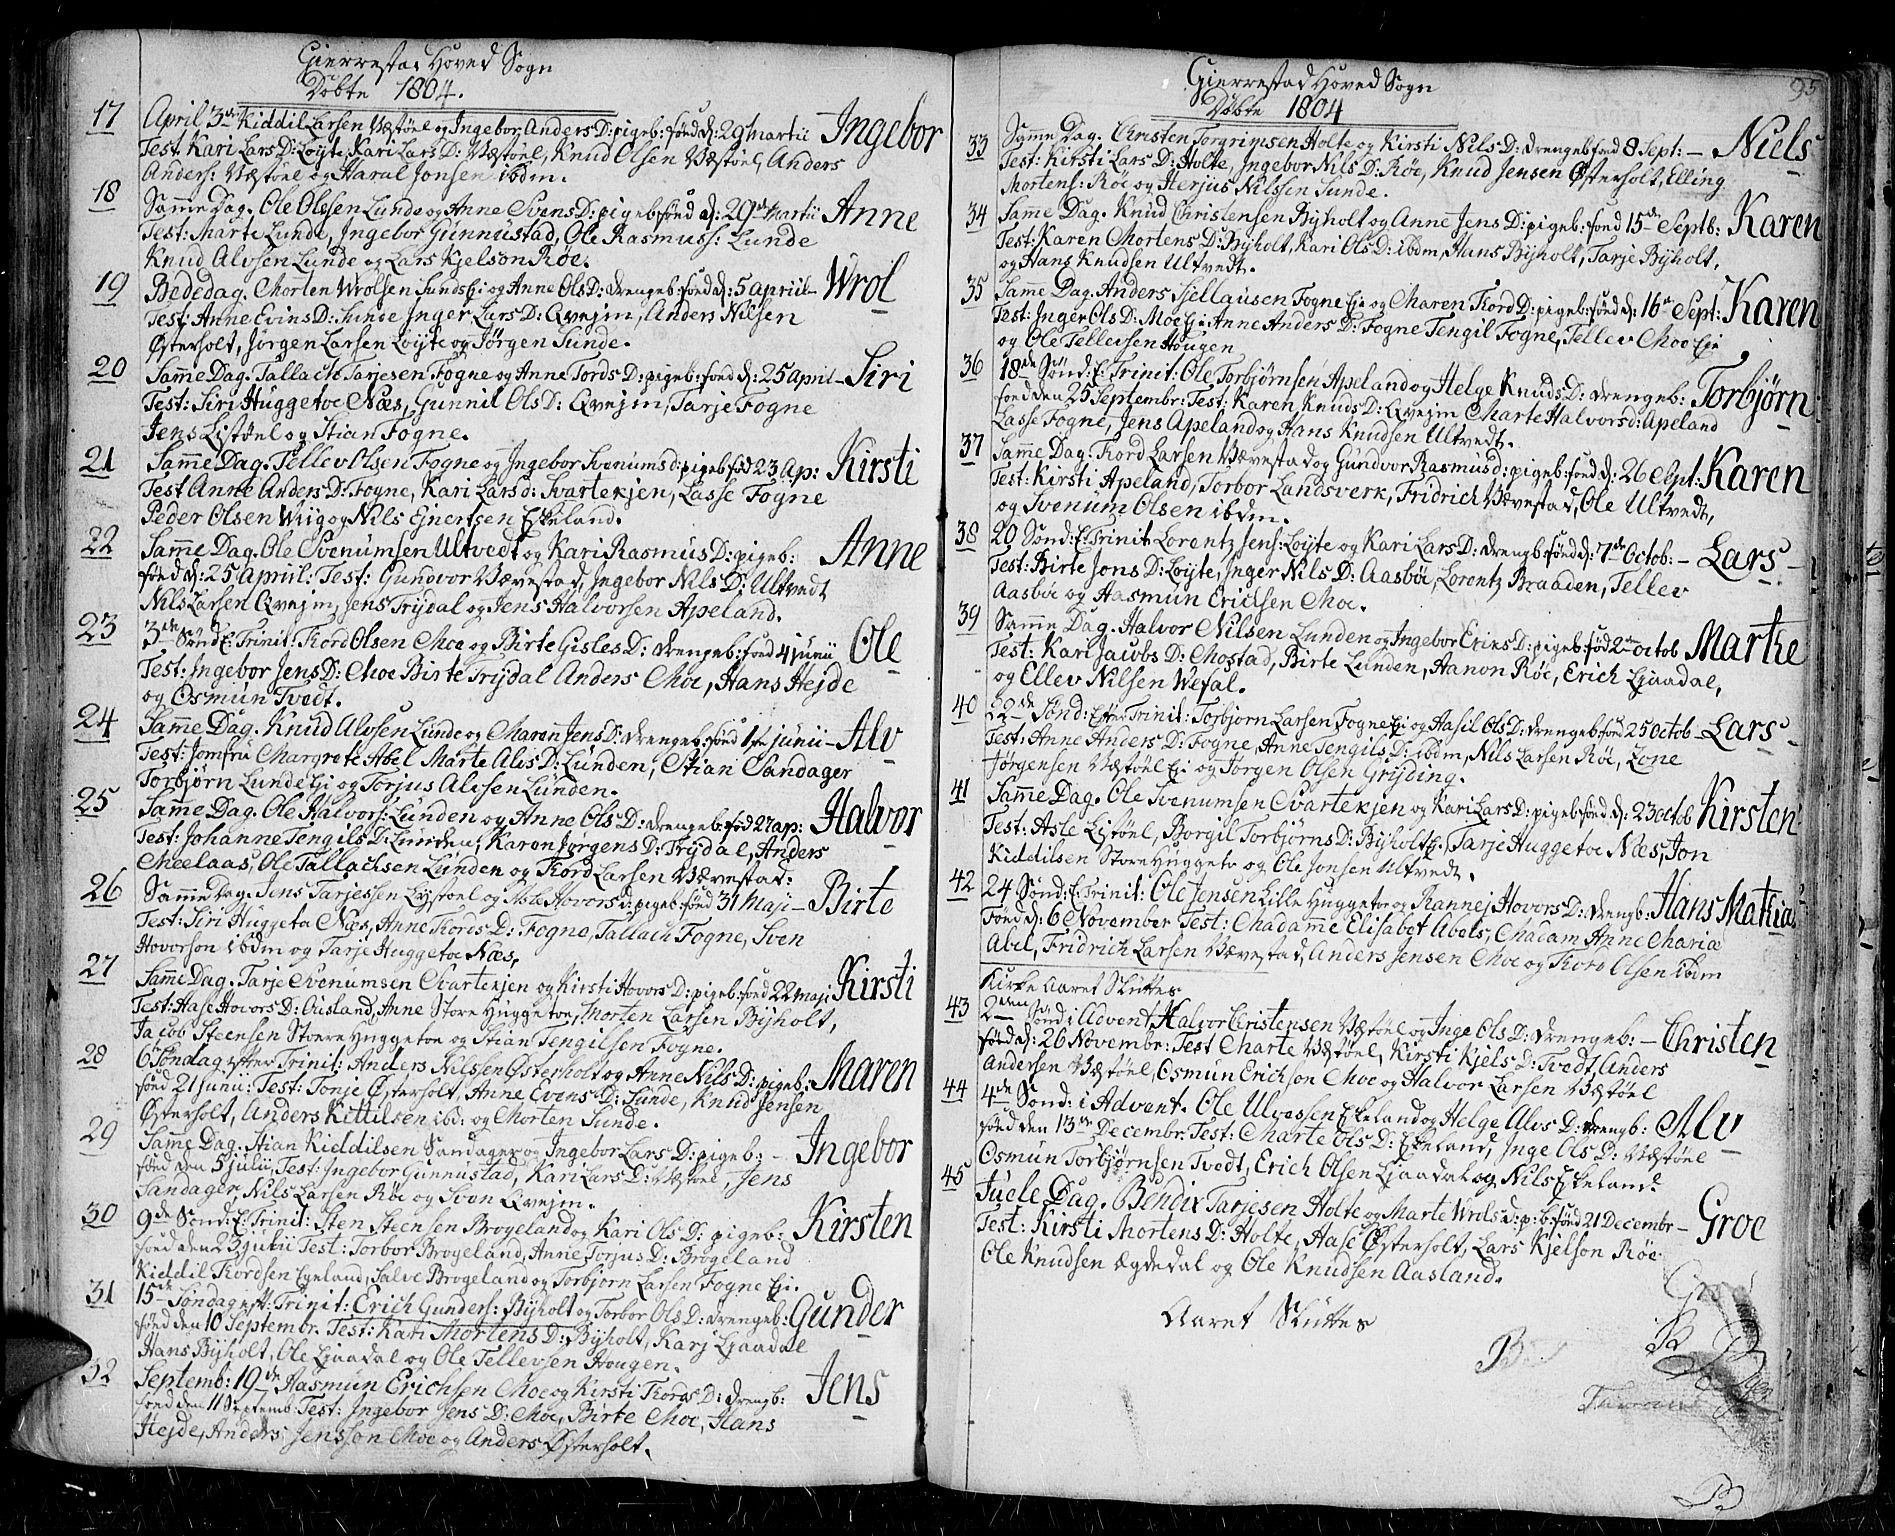 Gierrestad Hoved Sogn
Døbte 1804.
17 April 3de Kiddil Larsen Væstøel og Ingebor Anders D: pigeb: fønd d: 29 Martii Ingebor
Test. Kari Lars D: Løyte, Kari Lars D: Væstøel, Knud Olsen Væstøel, Anders
Anders: Væstøel og Haral Jonsen ibdm.
18 Samme Dag. Ole Olssen Lunde og Anne Svens D: pigeb: fønd d: 29de Martii Anne
Test: Marte Lunde, Ingebor Gunnustad, Ole Rasmuss: Lunde
Knud Alvsen Lunde og Lars Kjelson Røe.
19 Bededag. Morten Wrolsen Sunds Ei og Anne Ols D: drengeb: fønd d: 5 apriil - Wrol
Test: Anne Evins D: Sunde Inger Lars D: Qvejm, Anders Nilsen
Østerholt, Jørgen Larsen Løyte og Jørgen Sunde.
20 Samme Dag. Tallach Tarjesen Fogne og Anne Tords D: pigeb: fønd d: 25 April - Siri
Test: Siri Huggetoe Næs, Gunnil Ols D: Qvejm, Tarje Fogne
Jens Listøel og Stian Fogne.
21 Samme Dag. Tellev Olsen Fogne og Ingebor Svenums d: pigeb: fød 23 Ap: Kirsti
Test Anne Anders D: Fogne, Kari Lars d: Svartekjen, Lasse Fogne
Peder Olsen Wiig og Nils Ejnertsen Eikeland.
22 Samme Dag. Ole Svenumsen Ultvedt og Kari Rasmus D: pigeb: Anne
fønd d: 25 April: Test: Gundvor Vævestad, Ingebor Nils D: Ultvedt
Nils Larsen Qvejm, Jens Trydal og Jens Halvorsen Apeland.
23 3de Sønd E: Trinit: Tord Olsen Moe og Birte Gisles D: drengeb: fønd 4 Junii Ole
Test: Ingebor Jens D: Moe Birte Trydal Anders Moe, Hans Hejde
og Osmun Tvedt.
24 Samme Dag. Knud Alvsen Lunde og Maren Jens D: drengeb: fønd 1ste Junii - Alv
Test: Jomfru Margrete Abel Marte Alis D: Lunden, Stian Sandager
Torbjørn Lunde Ei og Torjus Alvsen Lunden.
25 Samme Dag. Ole Halvors: Lunden og Anne Ols D: drengeb: fød 27 ap: Halvor
Test: Johanne Tengils D: Lunden, Karen Jørgens D: Trydal, Anders
Meelaas, Ole Tallachsen Lunden og Tord Larsen Vævestad:
26 Samme Dag. Jens Tarjessen Lystoel og Asle Hovors d: pigeb: fønd 31 Maji - Birte
Test: Siri Huggeto Næs, Anne Tords D: Fogne, Tallach Fogne, Sven
Hovorson ibdm og Tarje Huggetoe Næs.
27 Samme Dag. Tarje Svenumsen Svartekjen og Kirsti Hovors D: pigeb: fønd 22 Maji Kirsti
Test: Aase Hovors D: Ausland, Anne Store Huggetoe, Morten Larsen Byholt,
Jacob Steensen Stoere Huggetoe og Stian Tengilsen Fogne.
28 6 Søndag efter Trinit: Anders Nilssen Østerholt og Anne Nils D: pigeb: Maren
fønd 21 Junii: Test: Tonje Østerholt, Anne Evens D: Sunde, Knud Jensen
Østerholt, Anders Kittilsen ibd: og Morten Sunde.
29 Samme Dag. Stian Kiddilsen Sandager og Ingebor Lars D: pigeb: - Ingebor
fønd den 5 Julii, Test: Ingebor Gunnustad, Kari Lars D: Væstøel, Jens
Sandager, Nils Larsen Røe og Sven Qvejm.
30 9de Sønd: E: Trinit: Sten Steensen Brogeland og Kari Ols D: pigeb: Kirsten
fønd den 23 Julii Test: Torbor Brogeland, Anne Torjus D: Brogeland
Kiddil Tordsen Egeland, Salve Brogeland og Torbjørn Larsen Fogne Ei.
31 15de Søndag eft: Trinit: Erich Gunders: Byholt og Torbor Ols D: drengeb: Gunder
fønd den 10 Septembr. Test: Kari Mortens D: Byholt, Karj Ljaadal
Hans Byholt, Ole Ljaadal og Ole Tellevsen Hougen.
32 Septemb: 19de Aasmun Erichsen Moe og Kirsti Tords D: drengb: Jens
fønd den 11 Septemb. Test: Ingebor Jens D: Moe, Birte Moe, Hans
Hejde, Anders Jensson Moe og Anders Østerholt.
95
Gierrestad Hoved Sogn
Døbte 1804
33 Samme Dag. Christen Torgrimsen Holte og Kirsti Nils D: drengeb fønd 8 Sept: - Niels
Test: Kirsti Lars D: Holte, Ingebor Nils D: Røe, Knud Jensen Østerholt, Elling
Mortens: Røe og Herjus Nilssen Sunde.
34 Same Dag. Knud Christensen Byholt og Anne Jens D: pigeb: fønd 15de Septb: Karen
Test: Karen Mortens D: Byholt, Kari Ols D: ibdm, Hans Byholt, Tarje Byholt,
og Hans Knudsen Ultvedt.
35 Samme Dag. Anders Sjellausen Fogne Eje og Maren Tord D: pigeb: fønd d: 16de Sept: Karen
Test: Inger Ols D: Moe Ei, Anne Anders D: Fogne Tengil Fogne, Tellev Moe Eje
og Ole Tellevsen Hougen
36 18de Sønd: E: Trinit: Ole Torbjørnsen Apeland og Helge Knuds D: drengeb: Torbjørn
fønd den 25 Septembr: Test: Karen Knuds D: Qvejm Marte Halvors d: Apeland
Lasse Fogne, Jens Apeland og Hans Knudsen Ultvedt.
37 Samme Dag. Tord Larsen Vævestad og Gundvor Rasmus d: pigeb: fønd d: 26 Sept: Karen
Test: Kirsti Apeland, Torbor Landsverk, Fridrich Vævestad, Ole Ultvedt,
og Svenum Olsen ibdm.
38 20 Sønd: E: Trinit: Lorentz Jens: Løyte og Kari Lars D: drengb: fønd d: 7de Octob: - Lars
Test: Birte Jons D: Løyte, Inger Nils D: Aasbøe, Lorentz Braaden, Tellev
Aasbøe og Aasmun Erichsen Moe.
39 Samme Dag. Halvor Nilsen Lunden og Ingebor Erins D: pigeb: fød 2den octob Marthe
Test: Kari Jacobs D: Mostad, Birte Lunden, Aanon Røe, Erich Ljaadal,
og Ellev Nilsen Wefal.
40 22de Sønd: Efter Trinit: Torbjorn Larsen Fogne Ei og Aasil Ols D: drengeb: fønd 25 Octob - Lars -
Test: Anne Anders D: Fogne, Anne Tengils D: ibdm, Nils Larsen Røe, Zone
Jørgensen Væstøel Ei og Jørgen Olsen Gryding.
41 Samme Dag. Ole Svenumsen Svartekjen og Kari Lars D: pigeb: fønd d: 23 octob Kirsten
Test: Asle Listøel, Borgil Torbjørns D: Byholt, Tarje Huggetoe Næs, Jon
Kiddilsen Store Huggeto og Ole Jonsen Ultvedt.
42 24 Sønd: E: Trinit: Ole Jensen Lille Huggetoe og Rannej Hovors D: drengb: Hans Mathias
fønd d: 6 November Test: Madamme Elisabet Abels, Madam Anne Maria
Abel, Fridrich Larsen Vævestad, Anders Jensen Moe og Tord Olsen ibdm
Kirke Aaret Sluttes
43 2den Sønd i Advent, Halvor Christensen Væstøel og Inge Ols D: drengeb: - Christen
fønd d: 26 Novembr: Test Marte Væstøel, Kirsti Kjels D: Tvedt, Anders
Andersen Væstøel, Osmun Erichson Moe og Halvor Larsen Væstøel
44 4de Sønd: i Advent. Ole Ulvessen Eikeland og Helge Alvs D: drengb: Alv
fønd den 13de Decembr. Test: Marte Ols D: Eikeland, Inge Ols D: Væstøel
Osmun Torbjørnsen Tvedt, Erich Olsen Ljaadal og Nils Eikeland.
45 Juele Dag. Bendix Tarjesen Holte og Marte Wrols d: p: b: fønd 21 Decembr - Groe
Test: Kirsti Mortens D: Holte, Aase Østerholt, Lars Kjelson Røe
Ole Knudsen Ægdedal og Ole Knudsen Aasland.
Aaret Sluttes